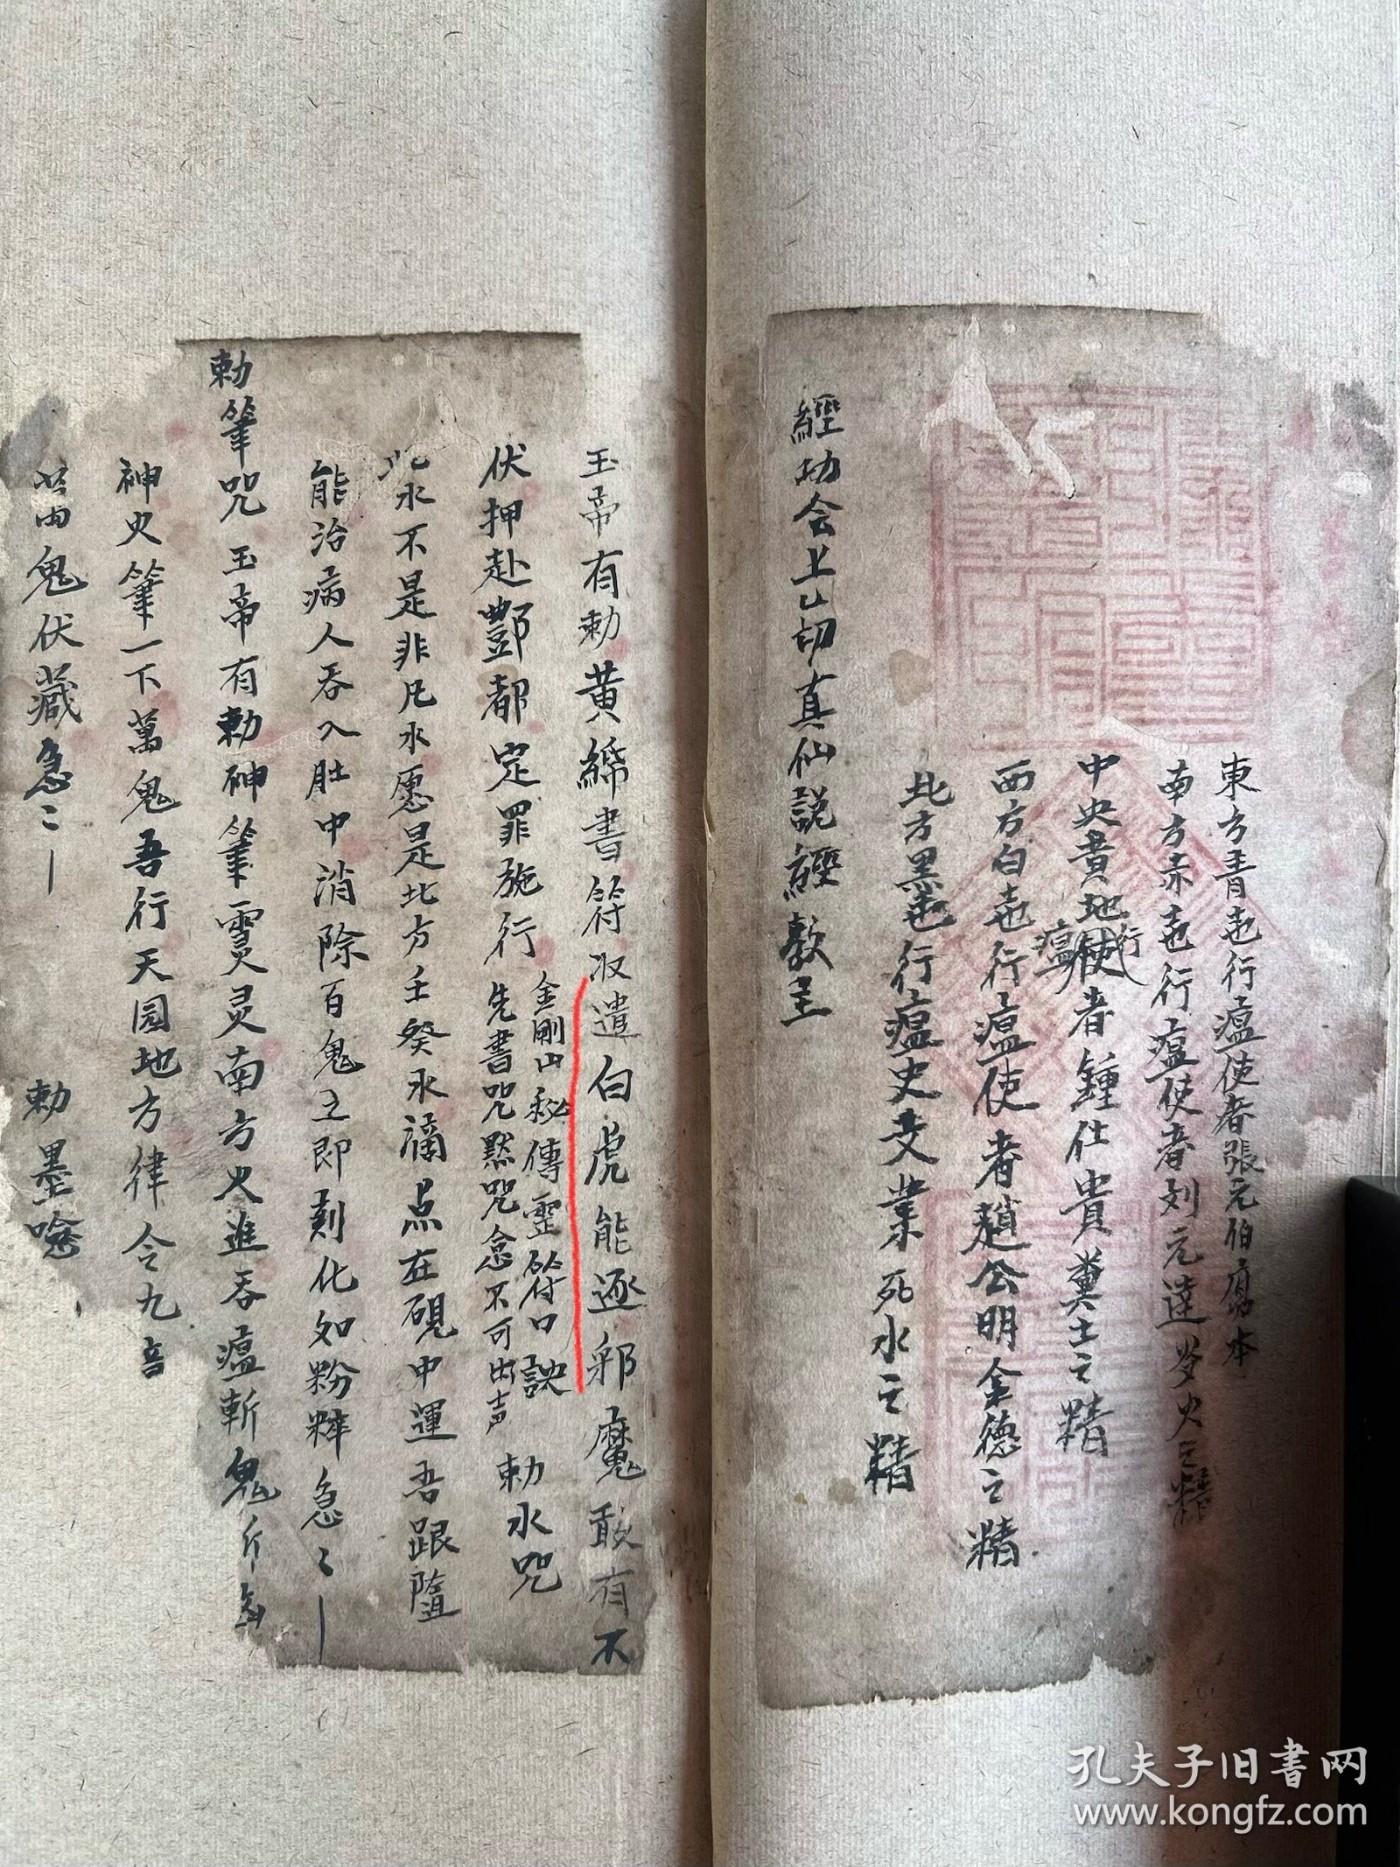 東方青炁行瘟使者張元伯腐木
南方赤炁行瘟使者刘元達岁火之精
中央黄地行瘟使者鍾仕貴糞土之精
西方白炁行瘟使者趙公明金德之精
北方黑炁行瘟史文業死水之精
經功会上山切真仙説經教主
玉帝有勅黄綿書符収遣白虎能逐邪魔敢有不
伏押赴酆都定罪施行
金剛山秘傳霊符口訣
先書咒黙咒念不可出声
勅水咒
此水不是非凡水愿是北方壬癸水滴点在硯中運吾跟隨
能治病人吞入肚中消除百鬼立即刻化如粉粹急〻
勅筆咒玉帝有勅神筆靈灵南方火進吞瘟斬鬼斤
神火筆一下萬鬼吾行天园地方律令九
鬼伏藏急〻
勅墨
孔夫子旧書网
www.kongfz.com